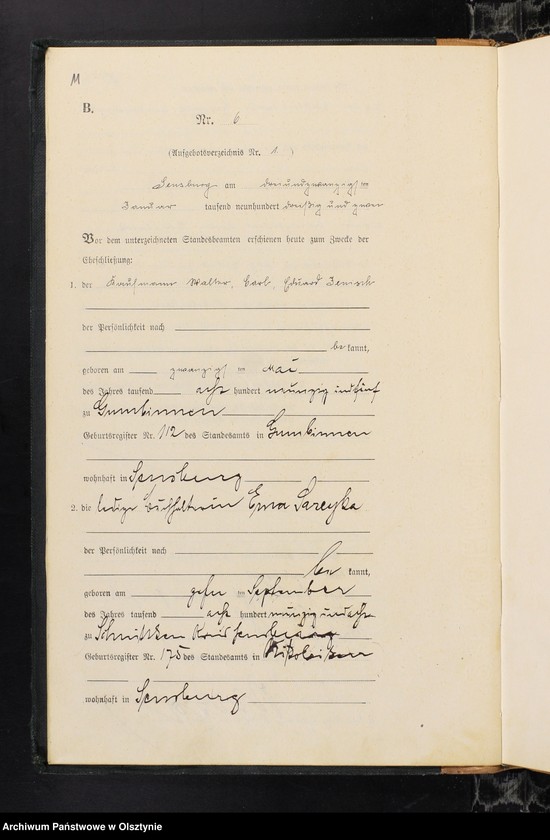 M
B.
Nr. 6
(Aufgebotsverzeichnis Nr. 1 )
Sensburg am dreiundzwanzigsten
Januar tausend neunhundert dreißig und zwei
Vor dem unterzeichneten Standesbeamten erschienen heute zum Zwecke der
Eheschließung:
1. der Kaufmann Walter, Carl, Eduard
der Persönlichkeit nach
be kannt,
geboren am zwanzigsten Mai
des Jahres tausend acht hundert neunzig und fünf
zu Gumbinnen
Geburtsregister Nr. 112 des Standesamts in Gumbinnen
wohnhaft in Sensburg
2. die ledige Buchhalterin Erna
der Persönlichkeit nach
be kannt,
geboren am zehn ten September
des Jahres tausend acht hundert neunzig und acht
zu Schnittken Kreis Sensburg
Geburtsregister Nr. 175 des Standesamts in Nikolaiken
wohnhaft in Sensburg
Archiwum Państwowe w Olsztynie